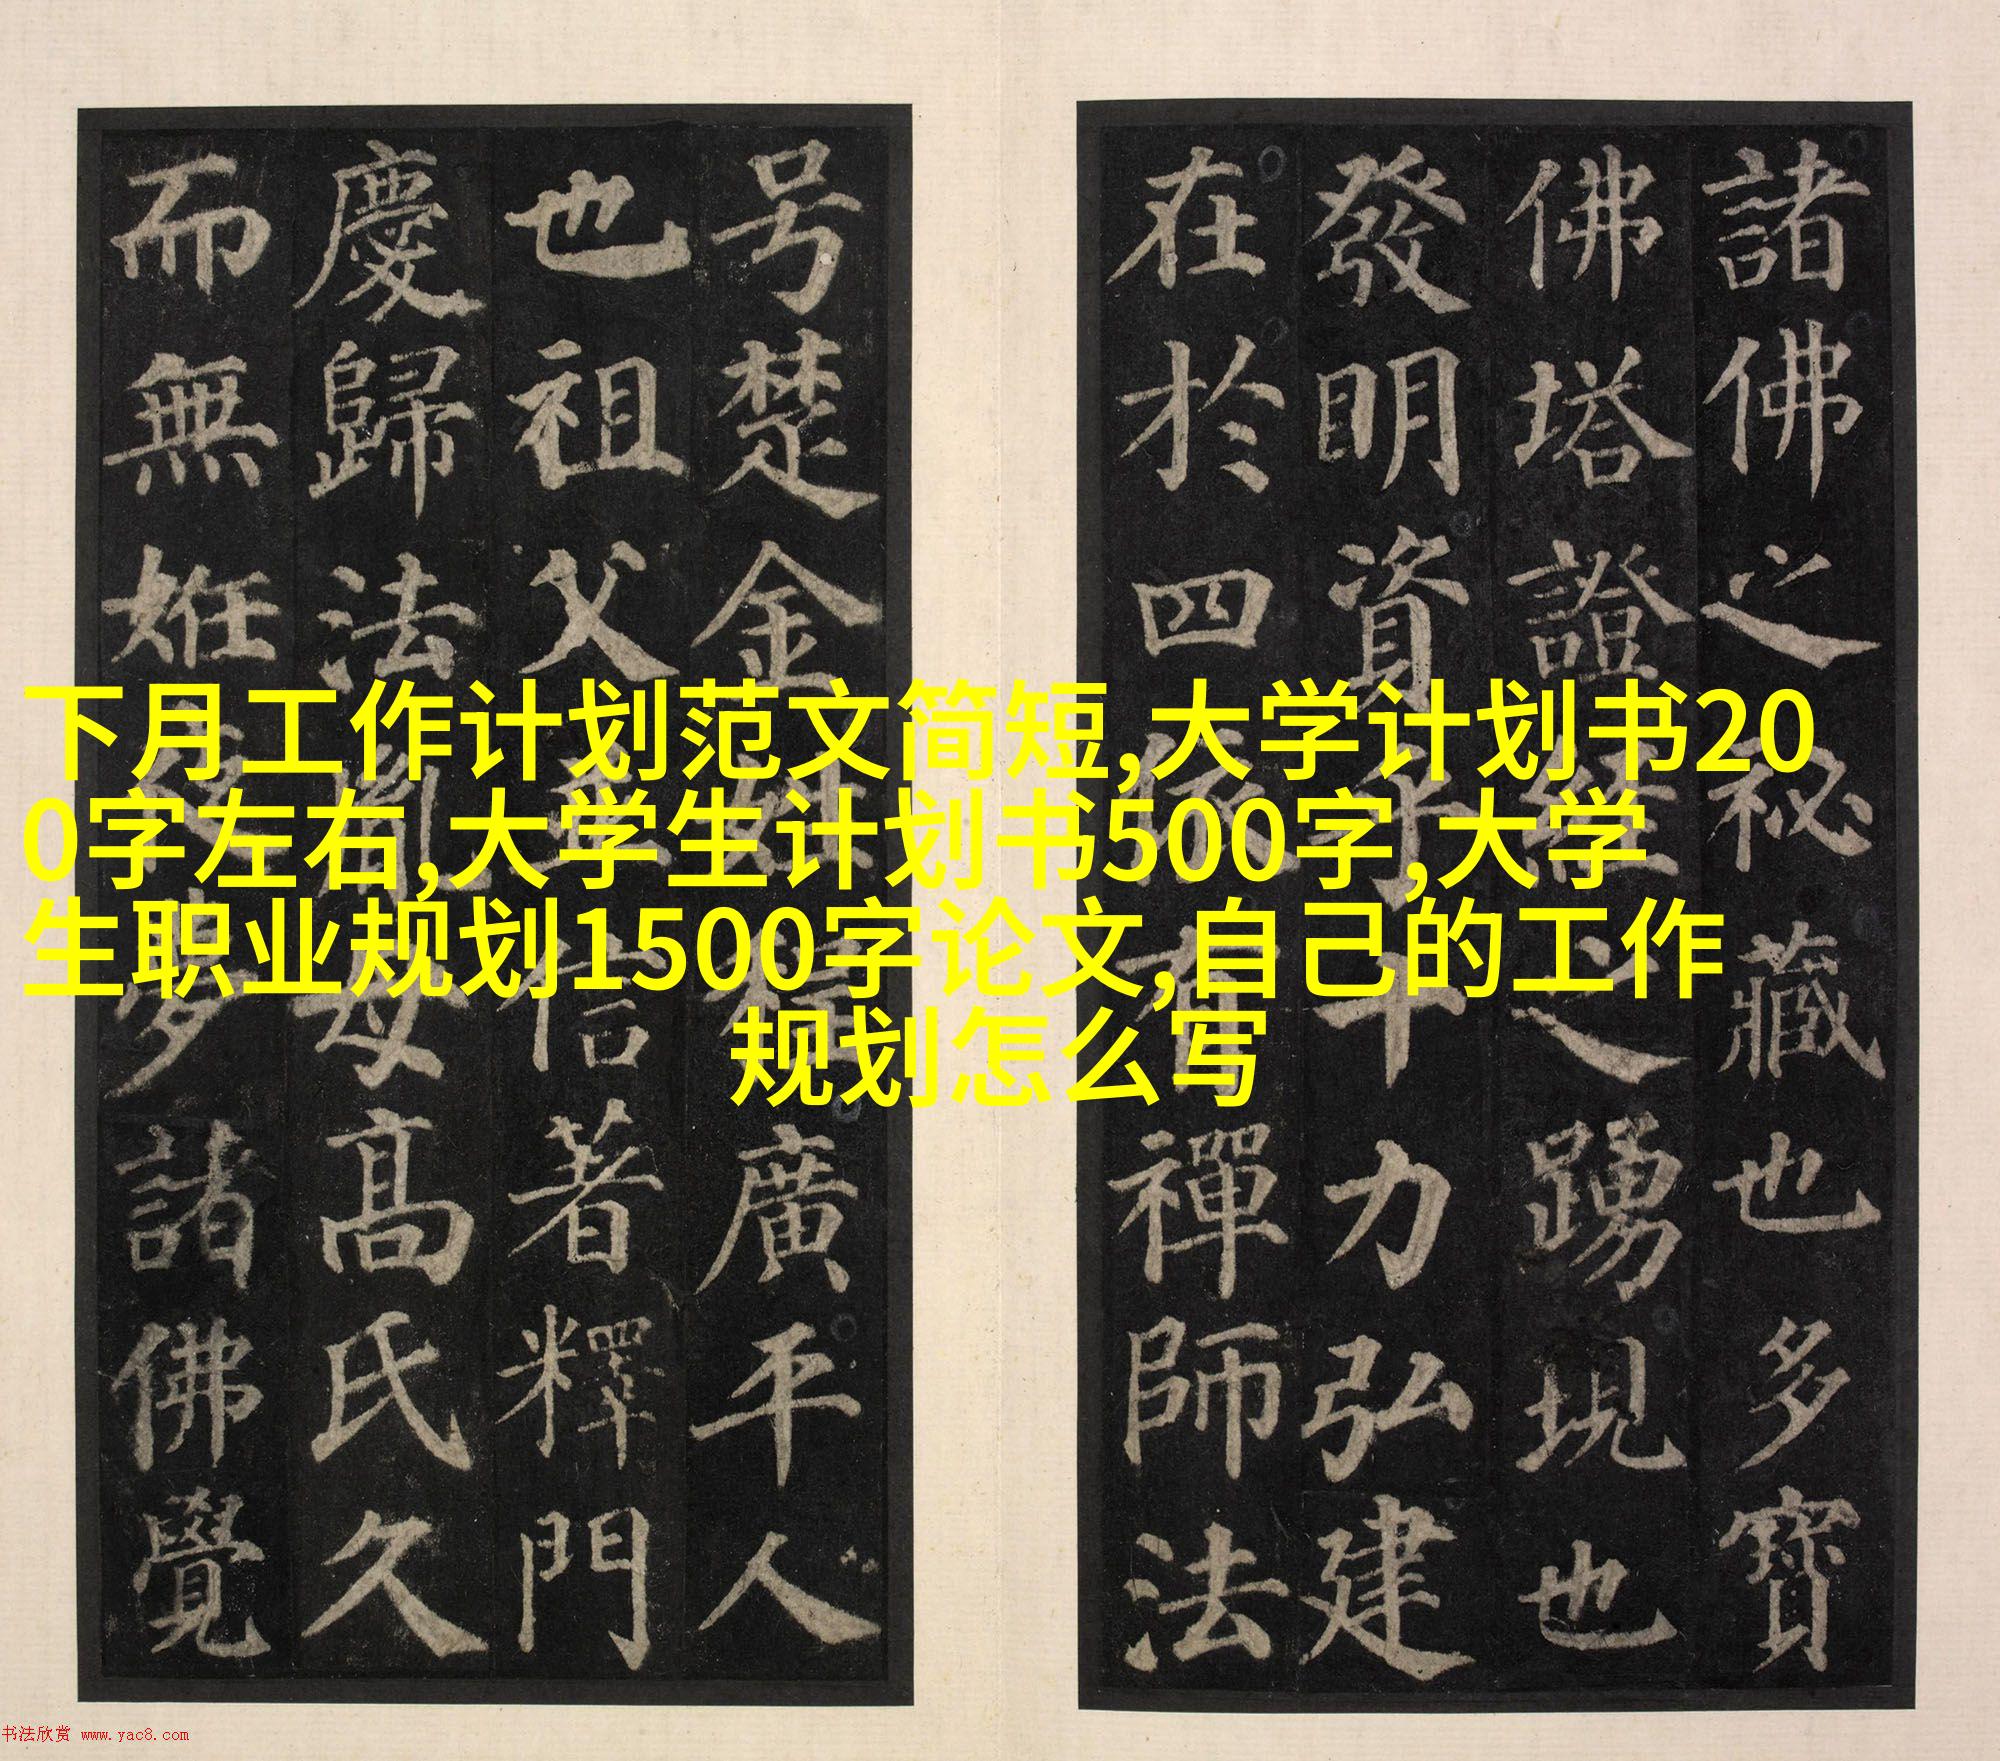 諸佛之祕藏也多寶
佛塔證經之踴現也
發明資乎十力弘建
在於四依有禪師法
号楚金姓程廣平人
也祖父並信著釋門
慶歸法胤母高氏久
而無姙夜夢諸佛覺
下月工作计划范文简短,大学计划书20
0字左右,大学生计划书500字,大学
生职业规划1500字论文,自己的工作
规划怎么写
书法欣赏 www.yac8.com